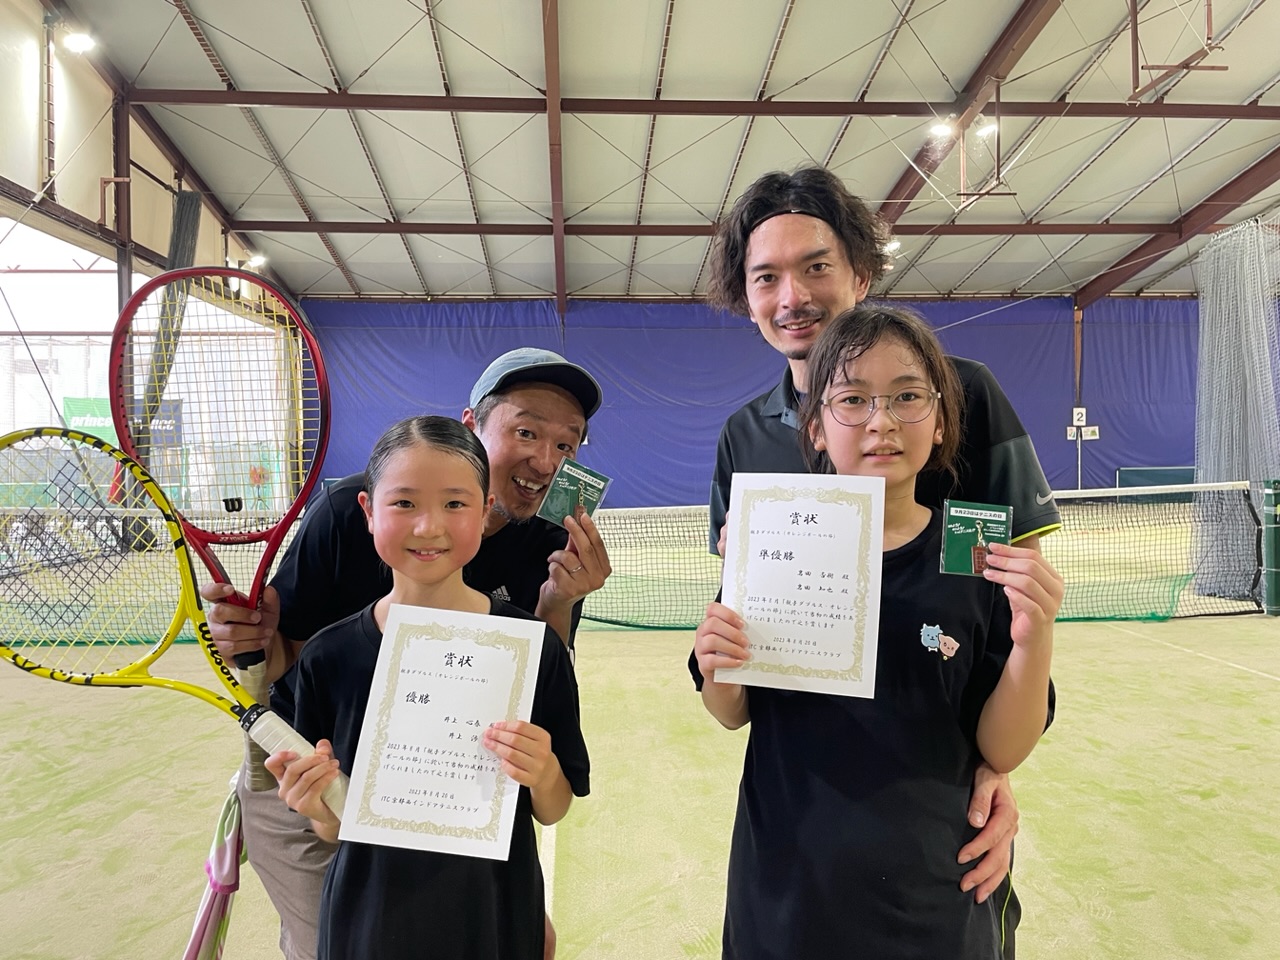 賞状
親子ダブルス(オレンジボールの部)
準優勝
2023年8月「親子ダブルス・オレンジ
ボールの部」に於いて首初の成績をあ
げられましたので之を賞します
2023年8月20日
ITC京都西インドアテニスクラブ
9月23日はテニスの日
賞状
親子ダブルス(オレンジボールの部)
優勝
井上 心春
井上 渉
2023年8月「親子ダブルス・オレンジ
ボールの部」に於いて首初の成績をあ
げられましたので之を賞します
2023年8月20日
ITC京都西インドアテニスクラブ
9月23日はテニスの日
Wilson
W
YONEX
adidas
prince
2